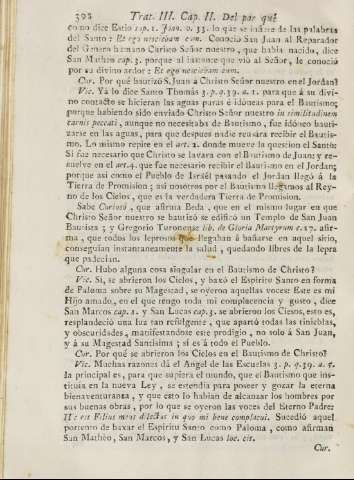 392 Trat. III. Cap. II. Del por qué
co no dice Estio cap. 1. Joan. v. 33. lo que se infiere de las palabras
del Santo: Et ego nesciebam eum. Conocia San Juan al Reparador
del Genero humano Christo Señor nuestro, que habia nacido, dice
San Matheo cap. 3. porque al instante que vió al Señor, le conoció
por su divino ardor: Et ego nesciebam eum.
Cur. Por qué bautizó S. Juan á Christo Señor nuestro en el Jordan?
Vic. Ya lo dice Santo Thomás 3. p. q. 39. a. 1. para que á su divi-
no contacto se hicieran las aguas puras é idóneas para el Bautismo;
porque habiendo sido enviado Christo Señor nuestro in similitudinem
carnis peccati, aunque no necesitaba de Bautismo, fue idóneo bauti-
zarse en las aguas, para que despues nadie reusara recibir el Bautis-
mo. Lo mismo repite en el art. 2. donde mueve la question el Santo:
Si fue necesario que Christo se lavara con el Bautismo de Juan; y re-
suelve en el art. 4. que fue necesario recibir el Bautismo en el Jordan;
porque asi como el Pueblo de Israél pasando el Jordan llegó á la
Tierra de Promision; asi nosotros por el Bautismo llegamos al Rey-
no de los Cielos, que es la verdadera Tierra de Promision.
Sabe Curioso, que afirma Beda, que en el mismo lugar en que
Christo Señor nuestro se bautizó se edificó un Templo de San Juan
Bautista; y Gregorio Turonense lib. de Gloria Martyrum c. 17. afir-
ma, que todos los leprosos que llegaban á bañarse en aquel sitio,
conseguian instantaneamente la salud, quedando libres de la lepra
que padecian.
Cur. Hubo alguna cosa singular en el Bautismo de Christo?
Vic. Si, se abrieron los Cielos, y baxó el Espiritu Santo en forma
de Paloma sobre su Magestad, se oyeron aquellas voces: Este es mi
Hijo amado, en el que tengo toda mi complacencia y gusto, dice
San Marcos cap. 1. y San Lucas cap. 3. se abrieron los Cielos, esto es,
resplandeció una luz tan refulgente, que apartó todas las tinieblas,
y obscuridades, manifestandose este prodigio, no solo á San Juan,
y á su Magestad Santisima; si es á todo el Pueblo.
Cur. Por qué se abrieron los Cielos en el Bautismo de Christo?
Vic. Muchas razones dá el Angel de las Escuelas 3. p. q. 39. a. 5.
la principal es, para que supiera el mundo, que el Bautismo que ins-
tituia en la nueva Ley, se estendia para poseer y gozar la eterna
bienaventuranza, y que esto lo habian de alcanzar los hombres por
sus buenas obras, por lo que se oyeron las voces del Eterno Padre:
Hic est Filius meus dilectus in quo mi bene complacui. Sucedió aquel
portento de baxar el Espiritu Santo como Paloma, como afirman
San Mathèo, San Marcos, y San Lucas loc. cit.
Cur.